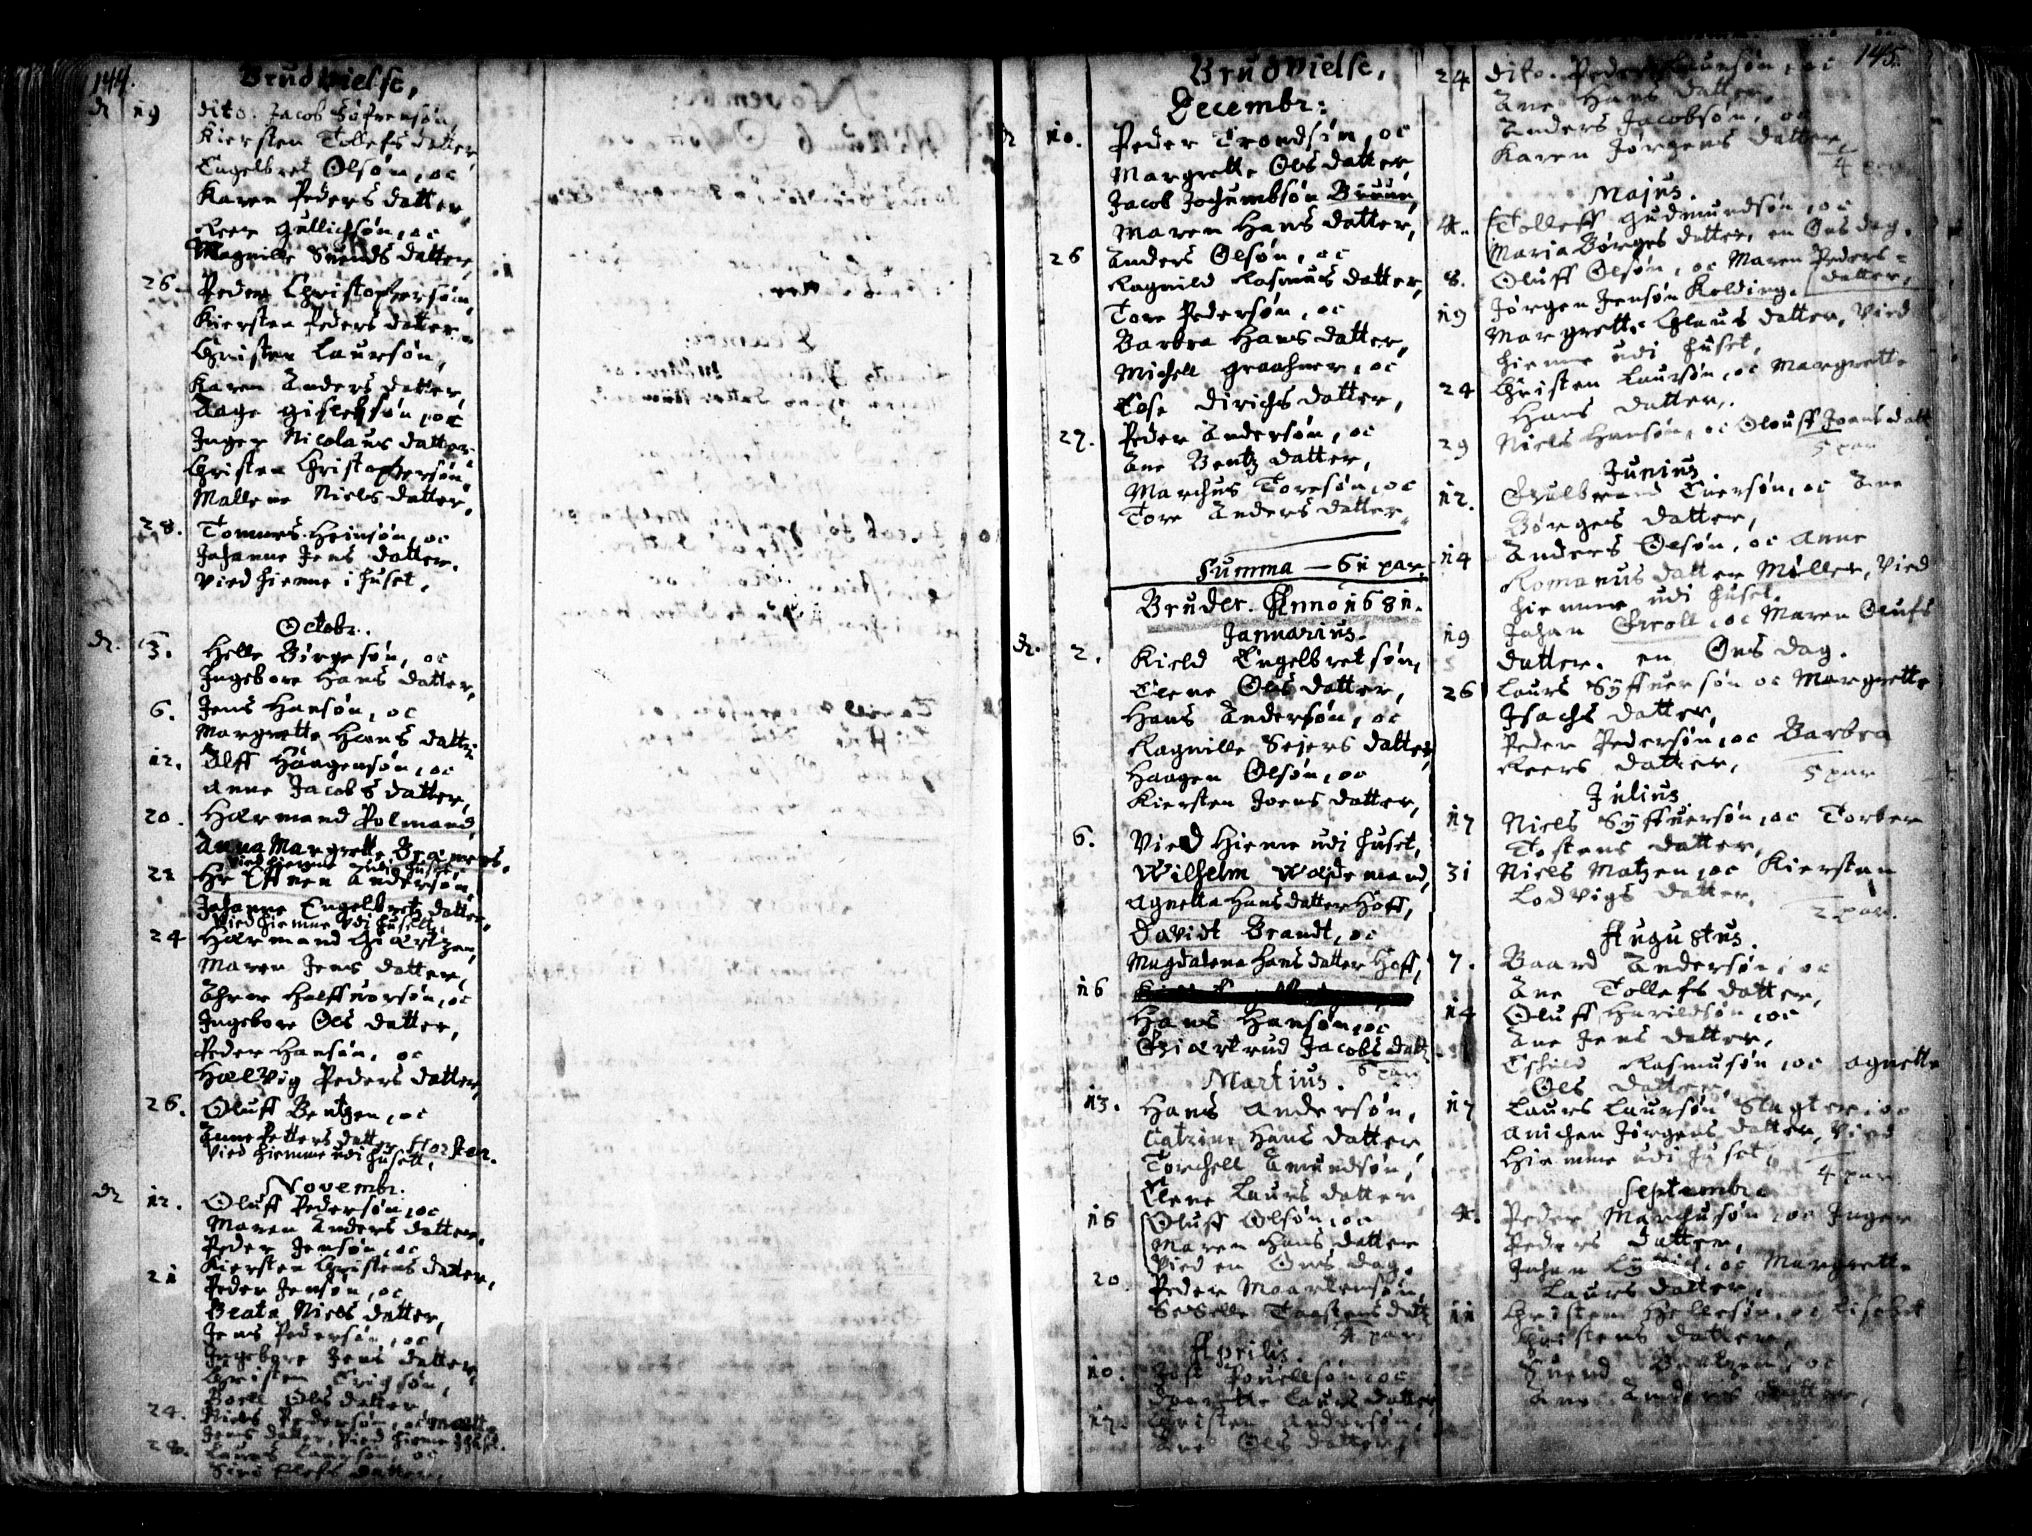 144.
Brudvielse,
d. 19 dito. Jacob Søfrensøn,
Kiersten Tollefs datter
Engelbret Olsøn, oc
Karen Peders datter,
Reer Gullichsøn, oc
Magnille Svends datter,
26. Peder Christophersøn,
Kiersten Peders datter
Christen Laursøn,
Karen Anders datter,
Aage Gislefsøn, oc
Inger Nicolaus datter
Christen Christophersøn,
Mallene Niels datter,
28. Tommes Heinsøn, oc
Johanne Jens datter.
Vied hiemme i huset,
Octobr.
d. 3. Helle Børgesøn, oc
Ingebore Hans datter,
6. Jens Hansøn, oc
Margrette Hans datter
12. Olff Haagensøn, oc
Anne Jacobs datter,
20. Harmand Polmand,
Anna Margrette Bramers.
vied hiemme udi huset
22 Hr Effuen Andersøn,
Johanne Engelbretz datter,
Vied hiemme udi husett,
24 Harmand Giertzen,
Maren Jens datter,
Ahrne Halffuorsøn, oc
Ingebore Ols datter,
Peder Hansøn, oc
Hælvig Peders datter,
26. Oluff Bentzen, oc
Anne Petters datter Horsten.
vied hiemme udi husett,
Novembr.
d. 12. Oluff Pedersøn, oc
Maren Anders datter,
Peder Jensøn, oc
Kiersten Christens datter,
21 Peder Jensøn, oc
Beata Niels datter,
Jens Pedersøn, oc
Ingebore Jens datter
Christen Erigsøn,
Boell Ols datter
24. Niels Pedersøn, oc
Jens datter, vied hieme
28. Laurs Laursøn, oc
Siri Olefs datter,
Brudvielse,
Decembr:
d 10. Peder Trondsøn, oc
Margrette Ols datter,
Jacob Jochumbsøn Bruun,
Maren Hans datter,
26 Anders Olsøn, oc
Ragnild Rasmus datter,
Tore Pedersøn, oc
Barbra Hans datter,
Michell Graahmer, oc
Cose Dirichs datter,
27. Peder Andersøn, oc
Ane Bentz datter,
Marchus Toresøn, oc
Tore Anders datter,
Summa — 61 par,
Bruder. Anno 1681.
Januarius.
d. 2. Kield Engelbretsøn,
Elene Ols datter,
Hans Andersøn, oc
Ragnille Sejers datter
Haagen Olsøn, oc
Kiersten Joens datter,
6. Vied hieme udi huset,
Wilhelm Woldemand,
Agnetta Hans datter Hoff,
Davidt Brandt, oc
Magdalena Hans datter Hoff,
16
Hans Hansøn, oc
Giertrud Jacobs datt
6 par
Martius.
13. Hans Andersøn,
Catrine Hans datter
Torchell Amundsøn,
Elene Laurs datter
16 Oluff Olsøn, oc
Maren Hans datter
Vied en Ons dag.
20. Peder Maartensøn,
Sidselle Taastens datt
4 par
Aprilis.
10. Jost Pouellsøn, oc
Laurs datter
17. Christen Andersøn,
Ane Ols datter,
145.
24 dito. Peder Laursøn, oc
Ane Hans datter,
Anders Jacobsøn, oc
Karen Jørgens datter,
4 par
Majus.
4. Tolleff Gudmundsøn, oc
Maria Børges datter, en Ons dag.
8. Oluff Olsøn, oc Maren Peders=
datter,
19 Jørgen Jensøn Kolding.
Margrette Claus datter, Vied
hieme udi huset,
24 Christen Laursøn, oc Margrette
Hans datter,
29 Niels Hansøn, oc Oluff Joens datt
5 par
Junius.
12. Gulbrand Euersøn, oc Ane
Børges datter,
14 Anders Olsøn, oc Anne
Romanus datter Møller, vied
hiemme udi huset.
19 Johan Groll, oc Maren Olufs
datter. en Ons dag.
26 Laurs Syffuersøn oc Margrette
Isachs datter,
Peder Pedersøn, oc Barbra
Reers datter,
5 par
Julius
17 Niels Syffuersøn, oc Torber
Tostens datter,
31 Niels Matzen, oc Kiersten
Lodvigs datter,
2 par.
Augustus.
7. Baard Andersøn, oc
Ane Tollefs datter,
14 Oluff Harildsøn, oc
Ane Jens datter,
Eskild Rasmusøn, oc Agnette
Ols datter,
17 Laurs Laursøn Slagter, oc
Anichen Jørgens datter, vied
hiemme udi huset,
4 par.
Septembr.
4. Peder Marchusøn, oc Inger
Peders datter,
Johan oc Margrette
Laurs datter,
11 Christen Hellesøn, oc Lisebet
Christens datter,
Svend Bentzen, oc
Ane Anders datter,